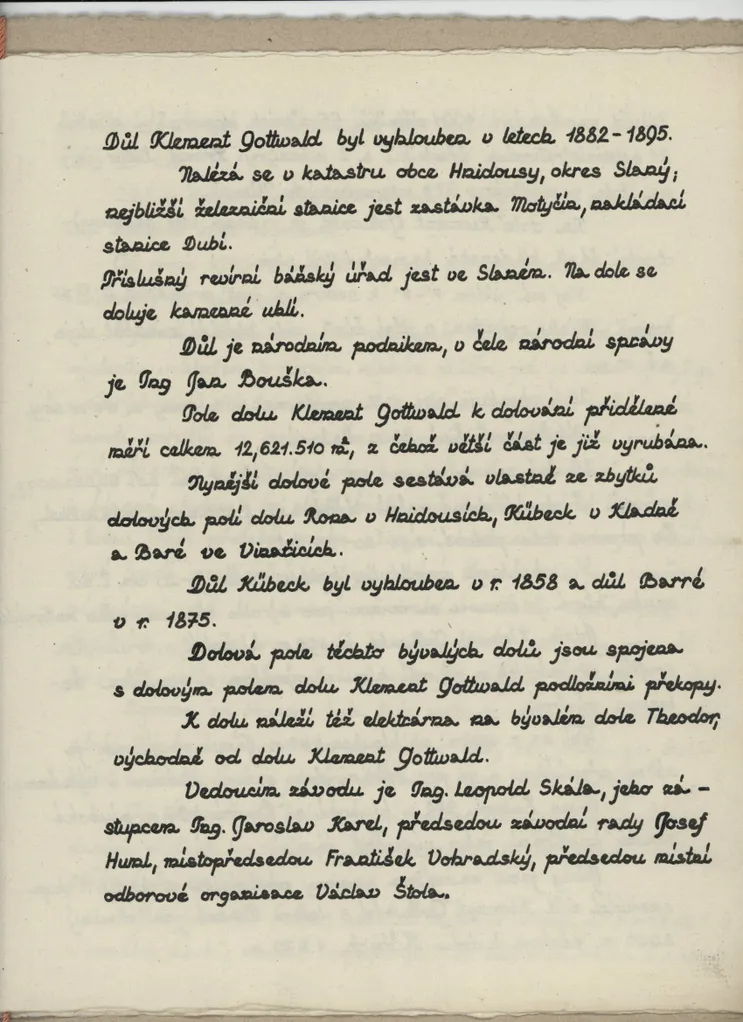 Důl Klement Gottwald byl vyhlouben v letech 1882-1895.
Nalézá se v katastru obce Hnidousy, okres Slaný;
nejbližší železniční stanice jest zastávka Motyčín, nakládací
stanice Dubí.
Příslušný revírní báňský úřad jest ve Slaném. Na dole se
doluje kamenné uhlí.
Důl je národním podnikem, v čele národní správy
je Ing Jan Bouška.
Pole dolu Klement Gottwald k dolování přidělené
měří celkem 12,621.510 m², z čehož větší část je již vyrubána.
Nynější dolové pole sestává vlastně ze zbytků
dolových polí dolu Rona v Hnidousích, Kübeck v Kladně
a Baré ve Vinařicích.
Důl Kübeck byl vyhlouben v r. 1858 a důl Barré
v r. 1875.
Dolová pole těchto bývalých dolů jsou spojena
s dolovým polem dolu Klement Gottwald podložními překopy.
K dolu náleží též elektrárna na bývalém dole Theodor,
východně od dolu Klement Gottwald.
Vedoucím závodu je Ing. Leopold Skála, jeho zá-
stupcem Ing. Jaroslav Karel, předsedou závodní rady Josef
Huml, místopředsedou František Vohradský, předsedou místní
odborové organisace Václav Štola.